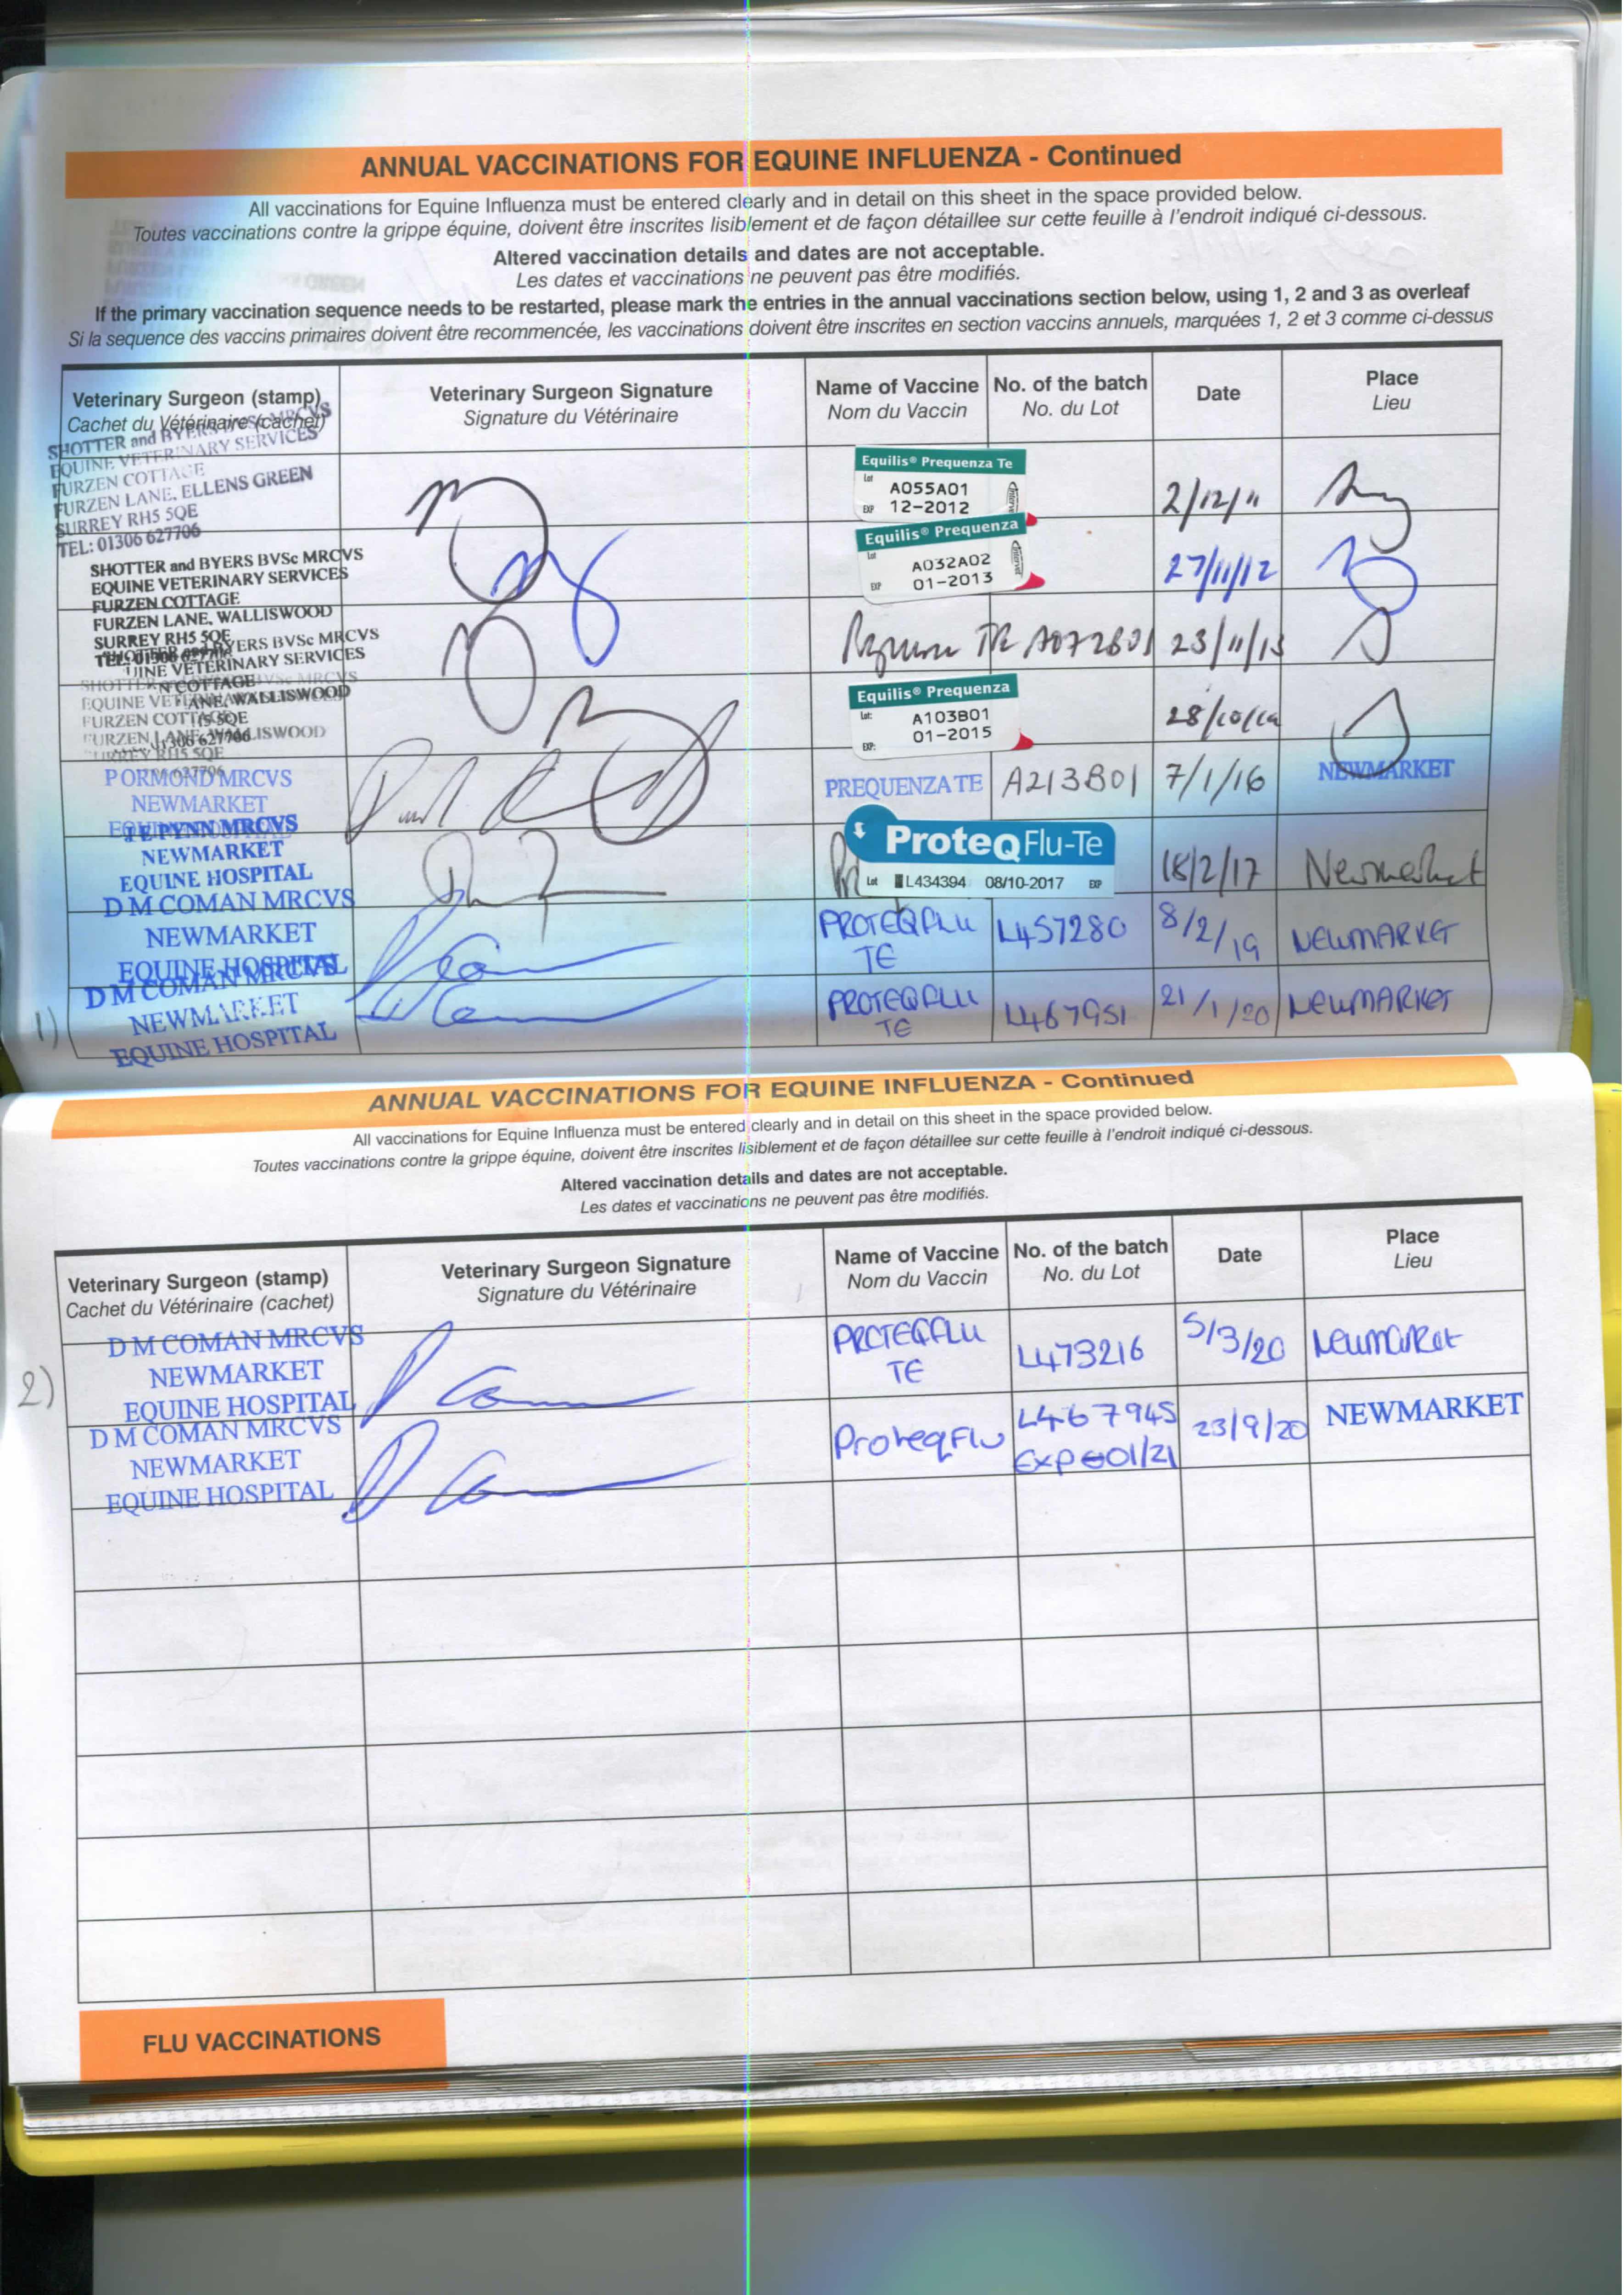 ANNUAL VACCINATIONS FOR EQUINE INFLUENZA - Continued
All vaccinations for Equine Influenza must be entered clearly and in detail on this sheet in the space provided below.
Toutes vaccinations contre la grippe équine, doivent être inscrites lisiblement et de façon détaillee sur cette feuille à l'endroit indiqué ci-dessous.
Altered vaccination details and dates are not acceptable.
Les dates et vaccinations ne peuvent pas être modifiés.
If the primary vaccination sequence needs to be restarted, please mark the entries in the annual vaccinations section below, using 1, 2 and 3 as overleaf
Si la sequence des vaccins primaires doivent être recommencée, les vaccinations doivent être inscrites en section vaccins annuels, marquées 1, 2 et 3 comme ci-dessus
Veterinary Surgeon (stamp) Veterinary Surgeon Signature Name of Vaccine No. of the batch Date Place
Cachet du Vétérinaire (cachet) Signature du Vétérinaire Nom du Vaccin No. du Lot Lieu
SHOTTER and BYERS MRCVS
EQUINE VETERINARY SERVICES
FURZEN COTTAGE
FURZEN LANE, ELLENS GREEN
SURREY RH5 5QE
TEL: 01306 627706
Equilis® Prequenza Te
Lot A055A01
EXP 12-2012
Intervet
2/12/11
SHOTTER and BYERS BVSc MRCVS
EQUINE VETERINARY SERVICES
FURZEN COTTAGE
FURZEN LANE, WALLISWOOD
SURREY RH5 5QE
TEL: 01306 627706
Equilis® Prequenza
Lot A032A02
EXP 01-2013
Intervet
27/11/12
BYERS BVSc MRCVS
VETERINARY SERVICES
COTTAGE
LANE, WALLISWOOD
5QE
01306 627706
TE A072B01 23/11/13
SHOTTER BVSc MRCVS
EQUINE
FURZEN COTTAGE
FURZEN LANE WALLISWOOD
RH5 5QE
627706
Equilis® Prequenza
Lot: A103B01
EXP: 01-2015
28/10/14
P ORMOND MRCVS
NEWMARKET
PREQUENZA TE A213B01 7/1/16 NEWMARKET
PYNN MRCVS
NEWMARKET
EQUINE HOSPITAL
ProteqFlu-Te
Lot L434394 08/10-2017 EXP
18/2/17 Newmarket
D M COMAN MRCVS
NEWMARKET
EQUINE HOSPITAL
PROTEQFLU
TE
L457280 8/2/19 NEWMARKET
1)
D M COMAN MRCVS
NEWMARKET
EQUINE HOSPITAL
PROTEQFLU
TE
L467951 21/1/20 NEWMARKET
ANNUAL VACCINATIONS FOR EQUINE INFLUENZA - Continued
All vaccinations for Equine Influenza must be entered clearly and in detail on this sheet in the space provided below.
Toutes vaccinations contre la grippe équine, doivent être inscrites lisiblement et de façon détaillee sur cette feuille à l'endroit indiqué ci-dessous.
Altered vaccination details and dates are not acceptable.
Les dates et vaccinations ne peuvent pas être modifiés.
Veterinary Surgeon (stamp) Veterinary Surgeon Signature Name of Vaccine No. of the batch Date Place
Cachet du Vétérinaire (cachet) Signature du Vétérinaire Nom du Vaccin No. du Lot Lieu
2)
D M COMAN MRCVS
NEWMARKET
EQUINE HOSPITAL
PROTEQFLU
TE
L473216 5/3/20 Newmarket
D M COMAN MRCVS
NEWMARKET
EQUINE HOSPITAL
ProteqFlu
L467945
Exp 01/21
23/9/20 NEWMARKET
FLU VACCINATIONS